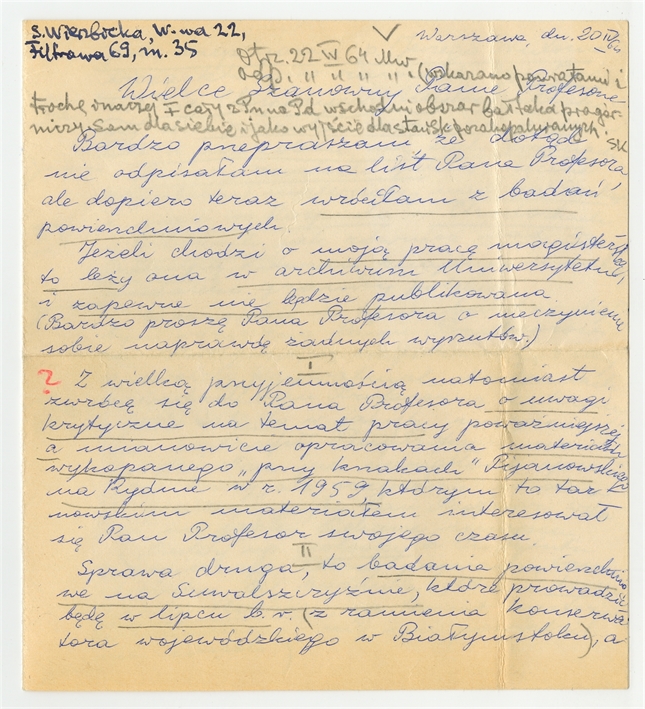 S. Wierzbicka, W-wa 22,
Filtrowa 69, m. 35
Warszawa, dn. 20 IV 64
Otrz. 22 IV 64 Mw
Odp. " " " " (wskazano powiązania i
Wielce Szanowny Panie Profesorze
trochę inaczej I cały z Pn na Pd wschodni obszar
nizy sam dla siebie i jako wyjście dla stanowisk
SK
Bardzo przepraszam, że dotąd
nie odpisałam na list Pana Profesora,
ale dopiero teraz wróciłam z badań
powierzchniowych.
Jeżeli chodzi o moją pracę magisterską,
to leży ona w archiwum Uniwersytetu,
i zapewne nie będzie publikowana.
(Bardzo proszę Pana Profesora o nieczynienie
sobie naprawdę żadnych wyrzutów.)
I
? Z wielką przyjemnością natomiast
zwrócę się do Pana Profesora o uwagi
krytyczne na temat pracy poważniejszej
a mianowicie opracowania materiału
wykopanego "przy krzakach" Pijanowskiego
na Rydnie w r. 1959, którym to tar-
nowskim materiałem interesował
się Pan Profesor swojego czasu.
II
Sprawa druga, to badania powierzchnio-
we na Suwalszczyźnie, które prowadzić
będę w lipcu b.r. (z ramienia Konserwa-
tora wojewódzkiego w Białymstoku), a